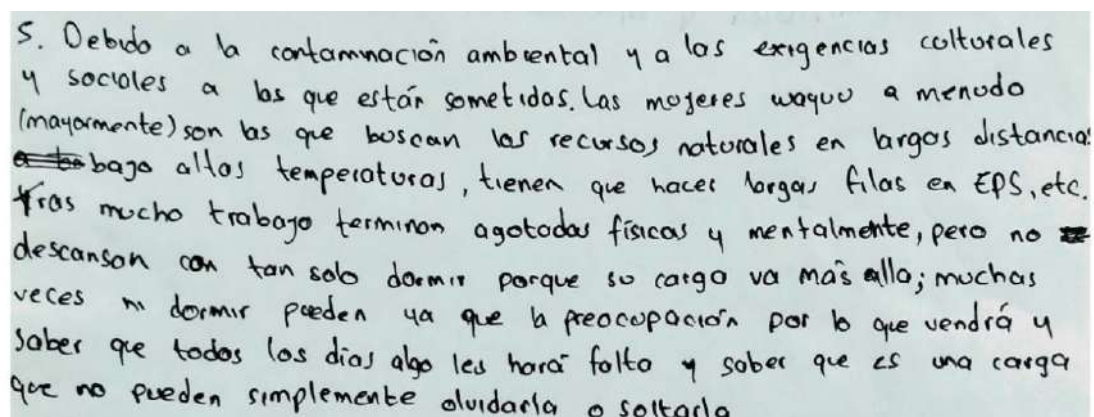 5. Debido a la contamnación ambiental y a las exigencias colturales
y sociales a las que están sometidas. Las mojeres wayuu a menudo
(mayormente) son las que buscan los recursos naturales en largas distancias
bajo altas temperaturas, tienen que hacer largas filas en EPS, etc.
Tras mucho trabajo terminan agotadas físicas y mentalmente, pero no
descansan con tan solo dormir porque su carga va más alla; muchas
veces ni dormir pueden ya que la preocupación por lo que vendrá y
saber que todos los días algo les hará falta y saber que es una carga
que no pueden simplemente olvidarla o soltarla